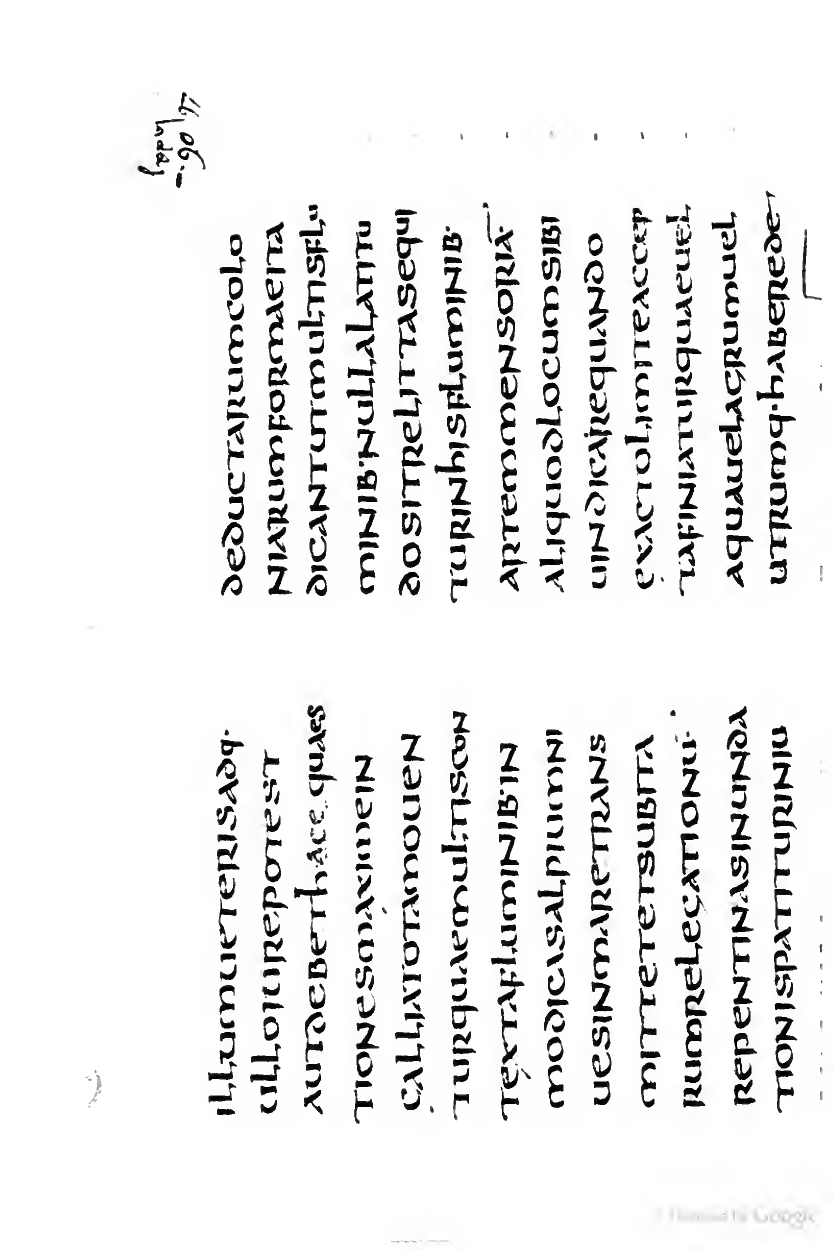 ILLUMUETERISADQ·
ULLOIUREPOTEST
AUTDEBETHACC QUAES
TIONESMAXIMEIN
GALLIATOTAMOUEN
TURQUAEMULTISCON
TEXTAFLUMINIB·IN
MODICASALPIUMNI
UESINMARETRANS
MITTETETSUBITA
RUMRELEGATIONU·
REPENTINASINUNDA
TIONISPATITURINIU
DEDUCTARUMCOLO
NIARUMFORMAEITA
DICANTUTMULTISFLU
MINIB·NULLALATITU
DOSITRELITTASEQUI
TURINHISFLUMINIB·
ARTEMMENSORIA·
ALIQUODLOCUMSIBI
UINDICAREQUANDO
EXACTOLIMITEACCEP
TAFINIATURQUAEUEL
AQUAUELAGRUMUEL
UTRUMQ·HABEREDE
Google